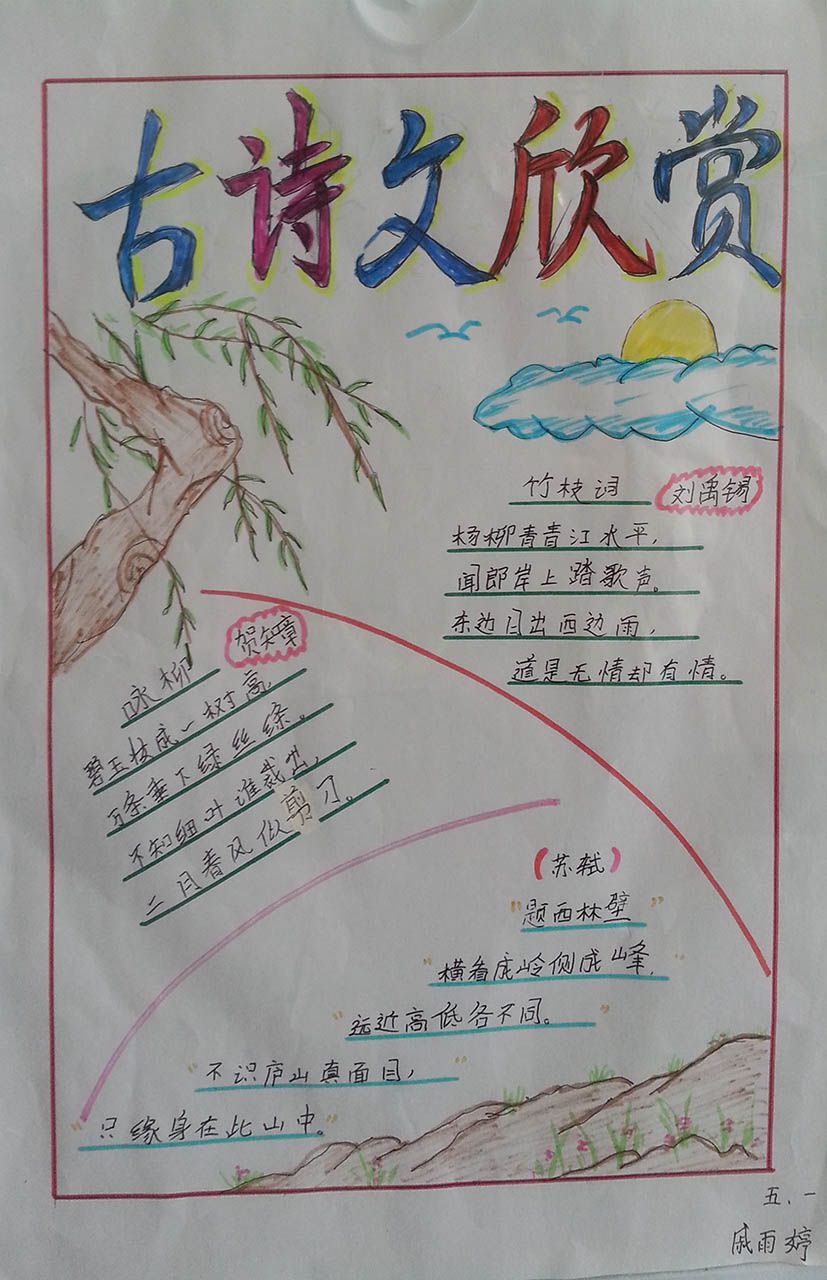 古诗文欣赏
竹枝词 刘禹锡
杨柳青青江水平，
闻郎岸上踏歌声。
东边日出西边雨，
道是无情却有情。
咏柳 贺知章
碧玉妆成一树高，
万条垂下绿丝绦。
不知细叶谁裁出，
二月春风似剪刀。
(苏轼)
"题西林壁"
"横看成岭侧成峰，
"远近高低各不同。"
"不识庐山真面目，"
"只缘身在此山中。"
五.一
戚雨婷